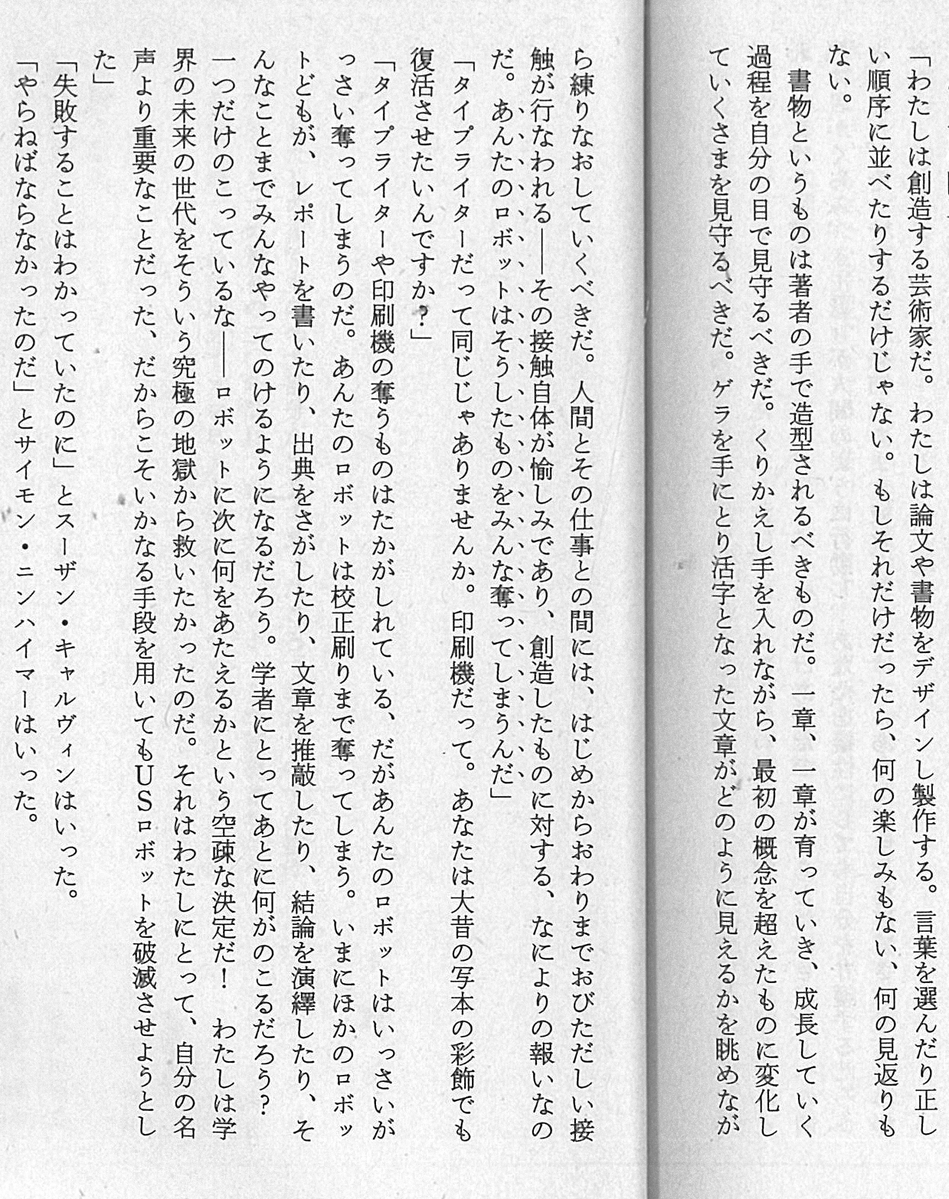 「わたしは創造する芸術家だ。わたしは論文や書物をデザインし製作する。言葉を選んだり正し
い順序に並べたりするだけじゃない。もしそれだけだったら、何の楽しみもない、何の見返りも
ない。
書物というものは著者の手で造型されるべきものだ。一章、一章が育っていき、成長していく
過程を自分の目で見守るべきだ。くりかえし手を入れながら、最初の概念を超えたものに変化し
ていくさまを見守るべきだ。ゲラを手にとり活字となった文章がどのように見えるかを眺めなが
ら練りなおしていくべきだ。人間とその仕事との間には、はじめからおわりまでおびただしい接
触が行なわれる――その接触自体が愉しみであり、創造したものに対する、なによりの報いなの
だ。あんたのロボットはそうしたものをみんな奪ってしまうんだ」
「タイプライターだって同じじゃありませんか。印刷機だって。あなたは大昔の写本の彩飾でも
復活させたいんですか?」
「タイプライターや印刷機の奪うものはたかがしれている、だがあんたのロボットはいっさいが
っさい奪ってしまうのだ。あんたのロボットは校正刷りまで奪ってしまう。いまにほかのロボッ
トどもが、レポートを書いたり、出典をさがしたり、文章を推敲したり、結論を演繹したり、そ
んなことまでみんなやってのけるようになるだろう。学者にとってあとに何がのこるだろう?
一つだけのこっているな――ロボットに次に何をあたえるかという空疎な決定だ! わたしは学
界の未来の世代をそういう究極の地獄から救いたかったのだ。それはわたしにとって、自分の名
声より重要なことだった、だからこそいかなる手段を用いてもUSロボットを破滅させようとし
た」
「失敗することはわかっていたのに」とスーザン・キャルヴィンはいった。
「やらねばならなかったのだ」とサイモン・ニンハイマーはいった。